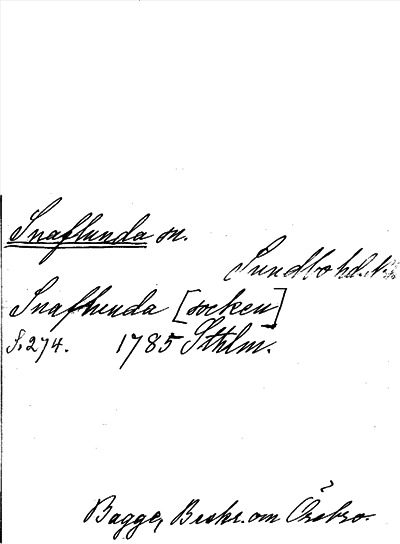 Snaflunda sn.
Sundbo hd.
Snaflunda [socken]
S. 274. 1785 Sthlm.
Bagge, Beskr. om Örebro.